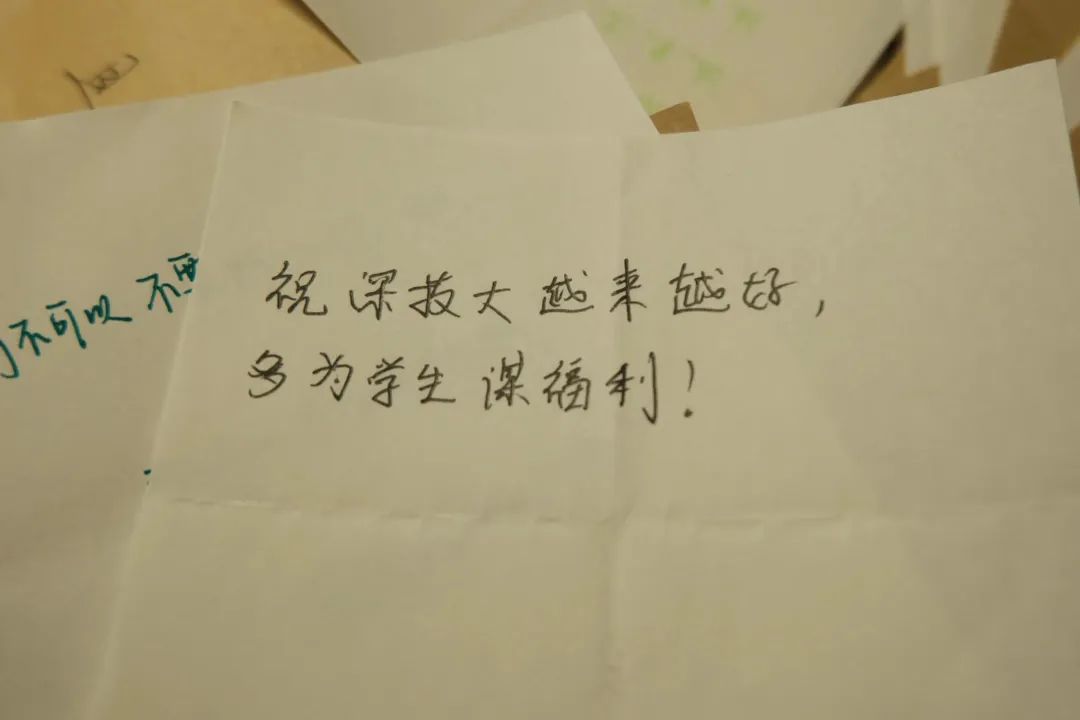 祝深技大越来越好，
多为学生谋福利！
不可以 不要